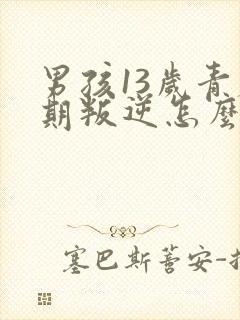 男孩13歲青
期叛逆怎麼
塞巴斯蒼安-扌